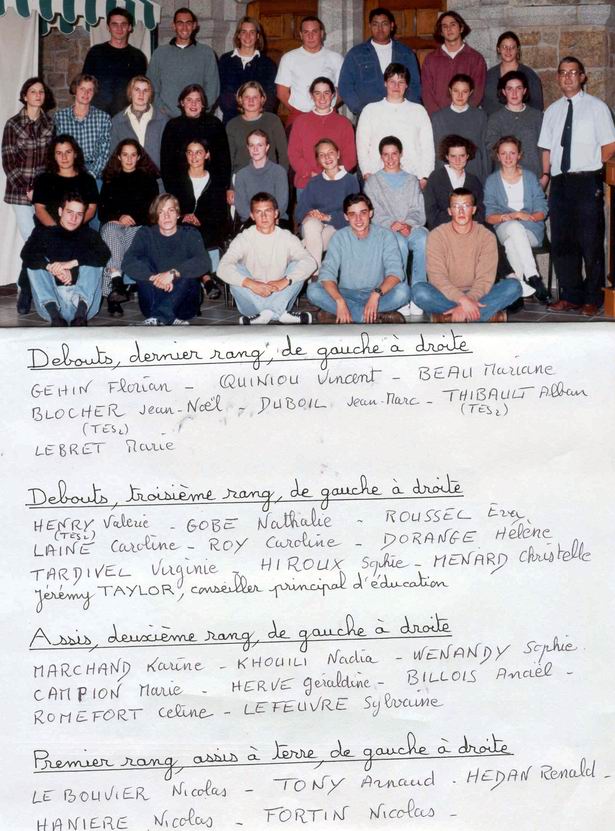 Debouts, dernier rang, de gauche à droite
GEHIN Florian - QUINIOU Vincent - BEAU Mariane
BLOCHER Jean-Noël - DUBOIL Jean-Marc - THIBAULT Alban
(TES2) (TES2)
LEBRET Marie
Debouts, troisième rang, de gauche à droite
HENRY Valérie - GOBE Nathalie - ROUSSEL Eva
(TES2)
LAINE Caroline - ROY Caroline - DORANGE Hélène
TARDIVEL Virginie - HIROUX Sophie - MENARD Christelle
Jérémy TAYLOR, conseiller principal d'éducation
Assis, deuxième rang, de gauche à droite
MARCHAND Karine - KHOUILI Nadia - WENANDY Sophie.
CAMPION Marie - HERVE Géraldine - BILLOIS Anaël -
ROMEFORT Céline - LEFEUVRE Sylvaine
Premier rang, assis à terre, de gauche à droite
LE BOUVIER Nicolas - TONY Arnaud - HEDAN Renald -
HANIERE Nicolas - FORTIN Nicolas -